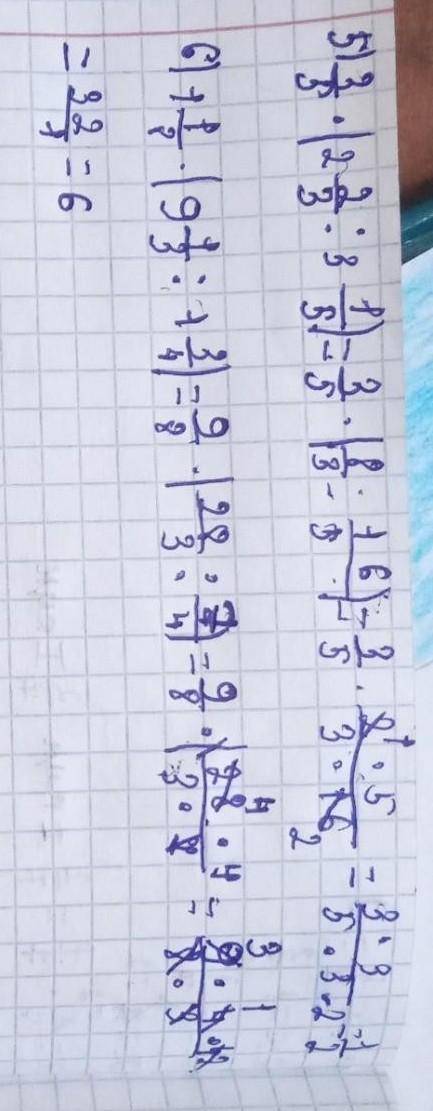 5) 3/5 · (2 2/3 : 3 1/5) = 3/5 · (8/3 : 16/5) = 3/5 · (8 · 5)/(3 · 16) = (3 · 3)/(5 · 3 · 2) = 1/2
6) 1 1/8 · (9 1/3 : 1 3/4) = 9/8 · (28/3 : 7/4) = 9/8 · (28 · 4)/(3 · 7) =
= 32/1 = 6